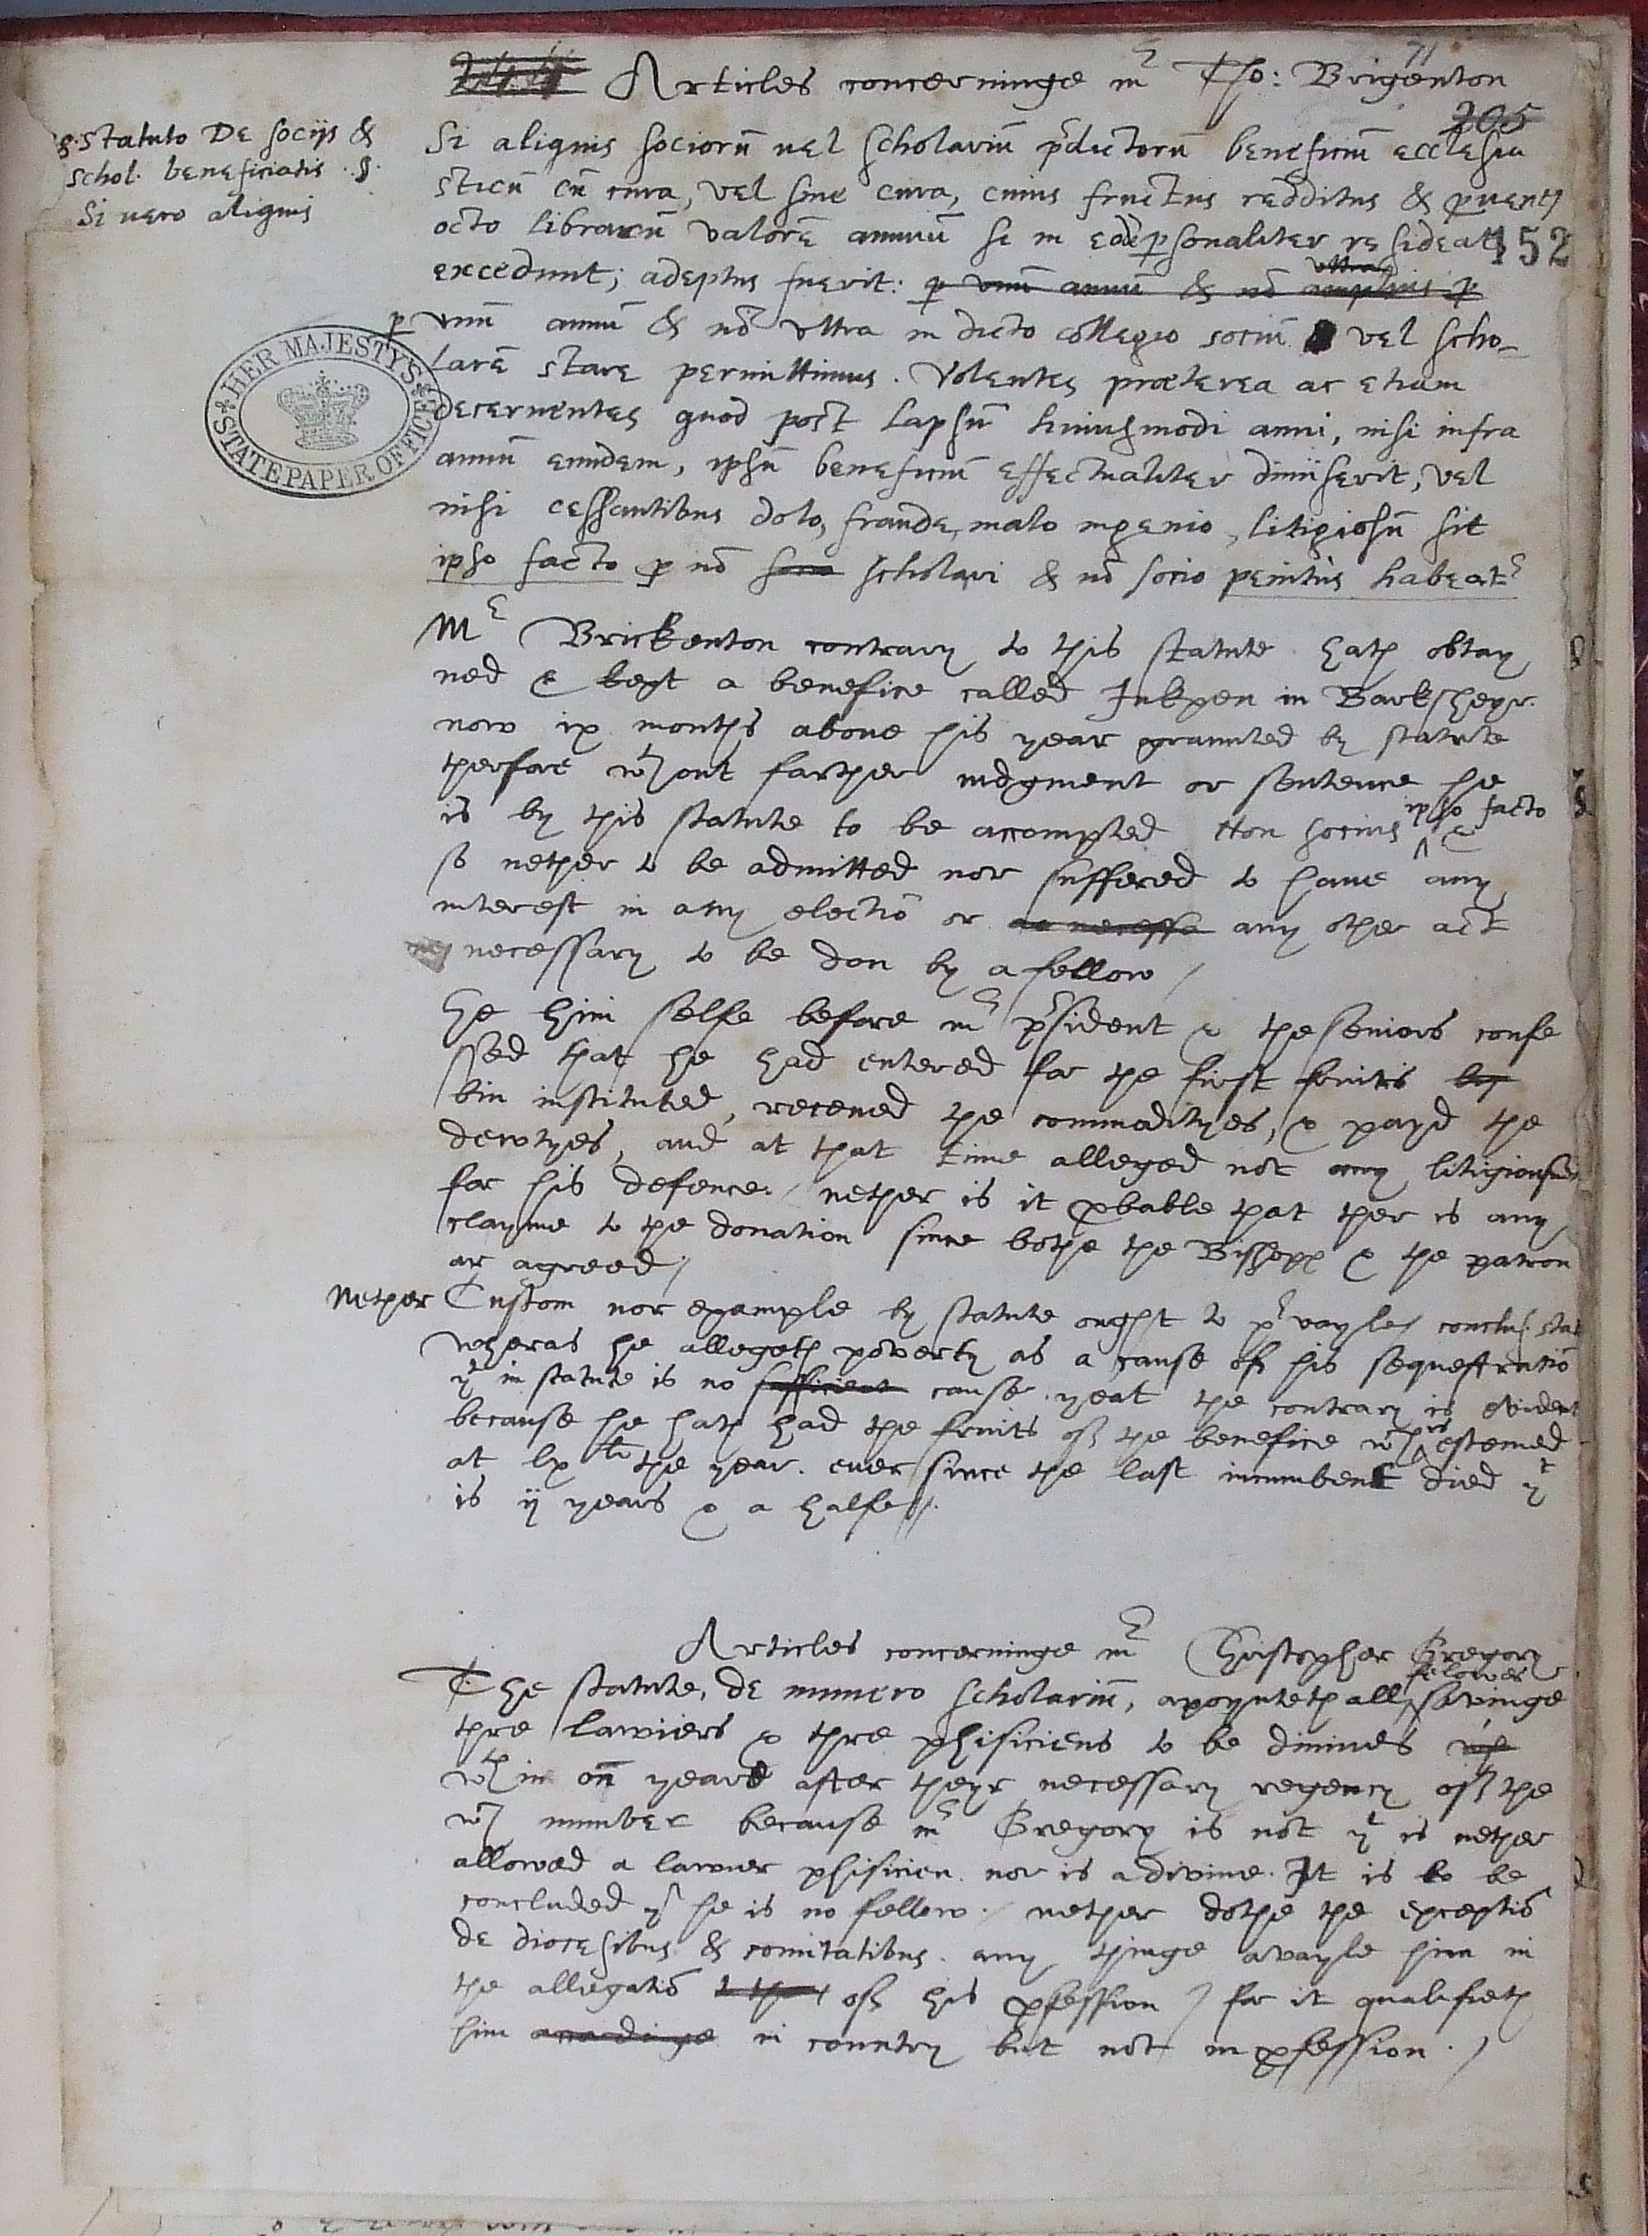 Articles concerninge mr Tho: Brigenton
71
205
§. Statuto De socijs &
schol. beneficiatis . §.
Si uero aliquis
Si aliquis sociorū uel scholariū p̄dictorū beneficiū ecclesia
sticū cū cura, vel sine cura, cuius fructus redditus & puent9
octo librarū valorē annuū si in eodē psonaliter resideat,
152
excedunt; adeptus fuerit: p vnū annū & nō amplius p
vltra
p vnū annū & nō vltra in dicto collegio sociū vel scho-
larē stare permittimus. Volentes præterea ac etiam
decernentes quod post lapsū huiusmodi anni, nisi infra
annū eundem, ipsū beneficiū effectualiter dimiserit, vel
nisi cessantibus dolo, fraude, malo ingenio, litigiosū sit
ipso facto p nō socio scholari & nō socio penitus habeatr
HER MAJESTY'S STATE PAPER OFFICE
Mr Brickenton contrary to this statute hath obtay
ned & kept a benefice called Inkpen in Barksheyr.
now ix months aboue his year graunted by statute
therfore wthout farther iudgment or sentence he
is by this statute to be accompted non socius ^ ipso facto &
so nether to be admitted nor suffered to haue any
interest in any electiō or ac necessa any other act
necessary to be don by a fellow /
He him selfe before mr p̄sident & the seniors confe
ssed that he had entered for the first fruits
bin instituted, receued the commodityes, & payd the
dewtyes, and at that time alleged not any
for his defence. / nether is it pbable that ther is any
clayme to the donation since bothe the Bisshopp & the patron
ar agreed /
Nether Custom nor example by statute ought to p̄vayle / conclus. stat
wheras he allegeth poverty as a cause of his sequestratiō
yt in statute is no sufficient cause. yeat the contrary is evident
because he hath had the fruits of the benefice wch ^ is estemed
at lx li the year. euer since the last incumbent died yt
is ij years & a halfe //.
Articles concerninge mr Christopher Gregory
The statute, de numero scholariū, apoynteth all ^ felowes savinge
thre lawiers & thre phisiciens to be divines wth
wthin on year after theyr necessary regency of the
wch number because mr Gregory is not yt is nether
allowed a lawier phisicien. nor is a divine. It is to be
concluded yt he is no fellow. / nether dothe the exceptiō
de diocesibus & comitatibus. any thinge avayle him in
the allegatiō of his pfession / for it qualifieth
him accordinge in country but not in pfession. /